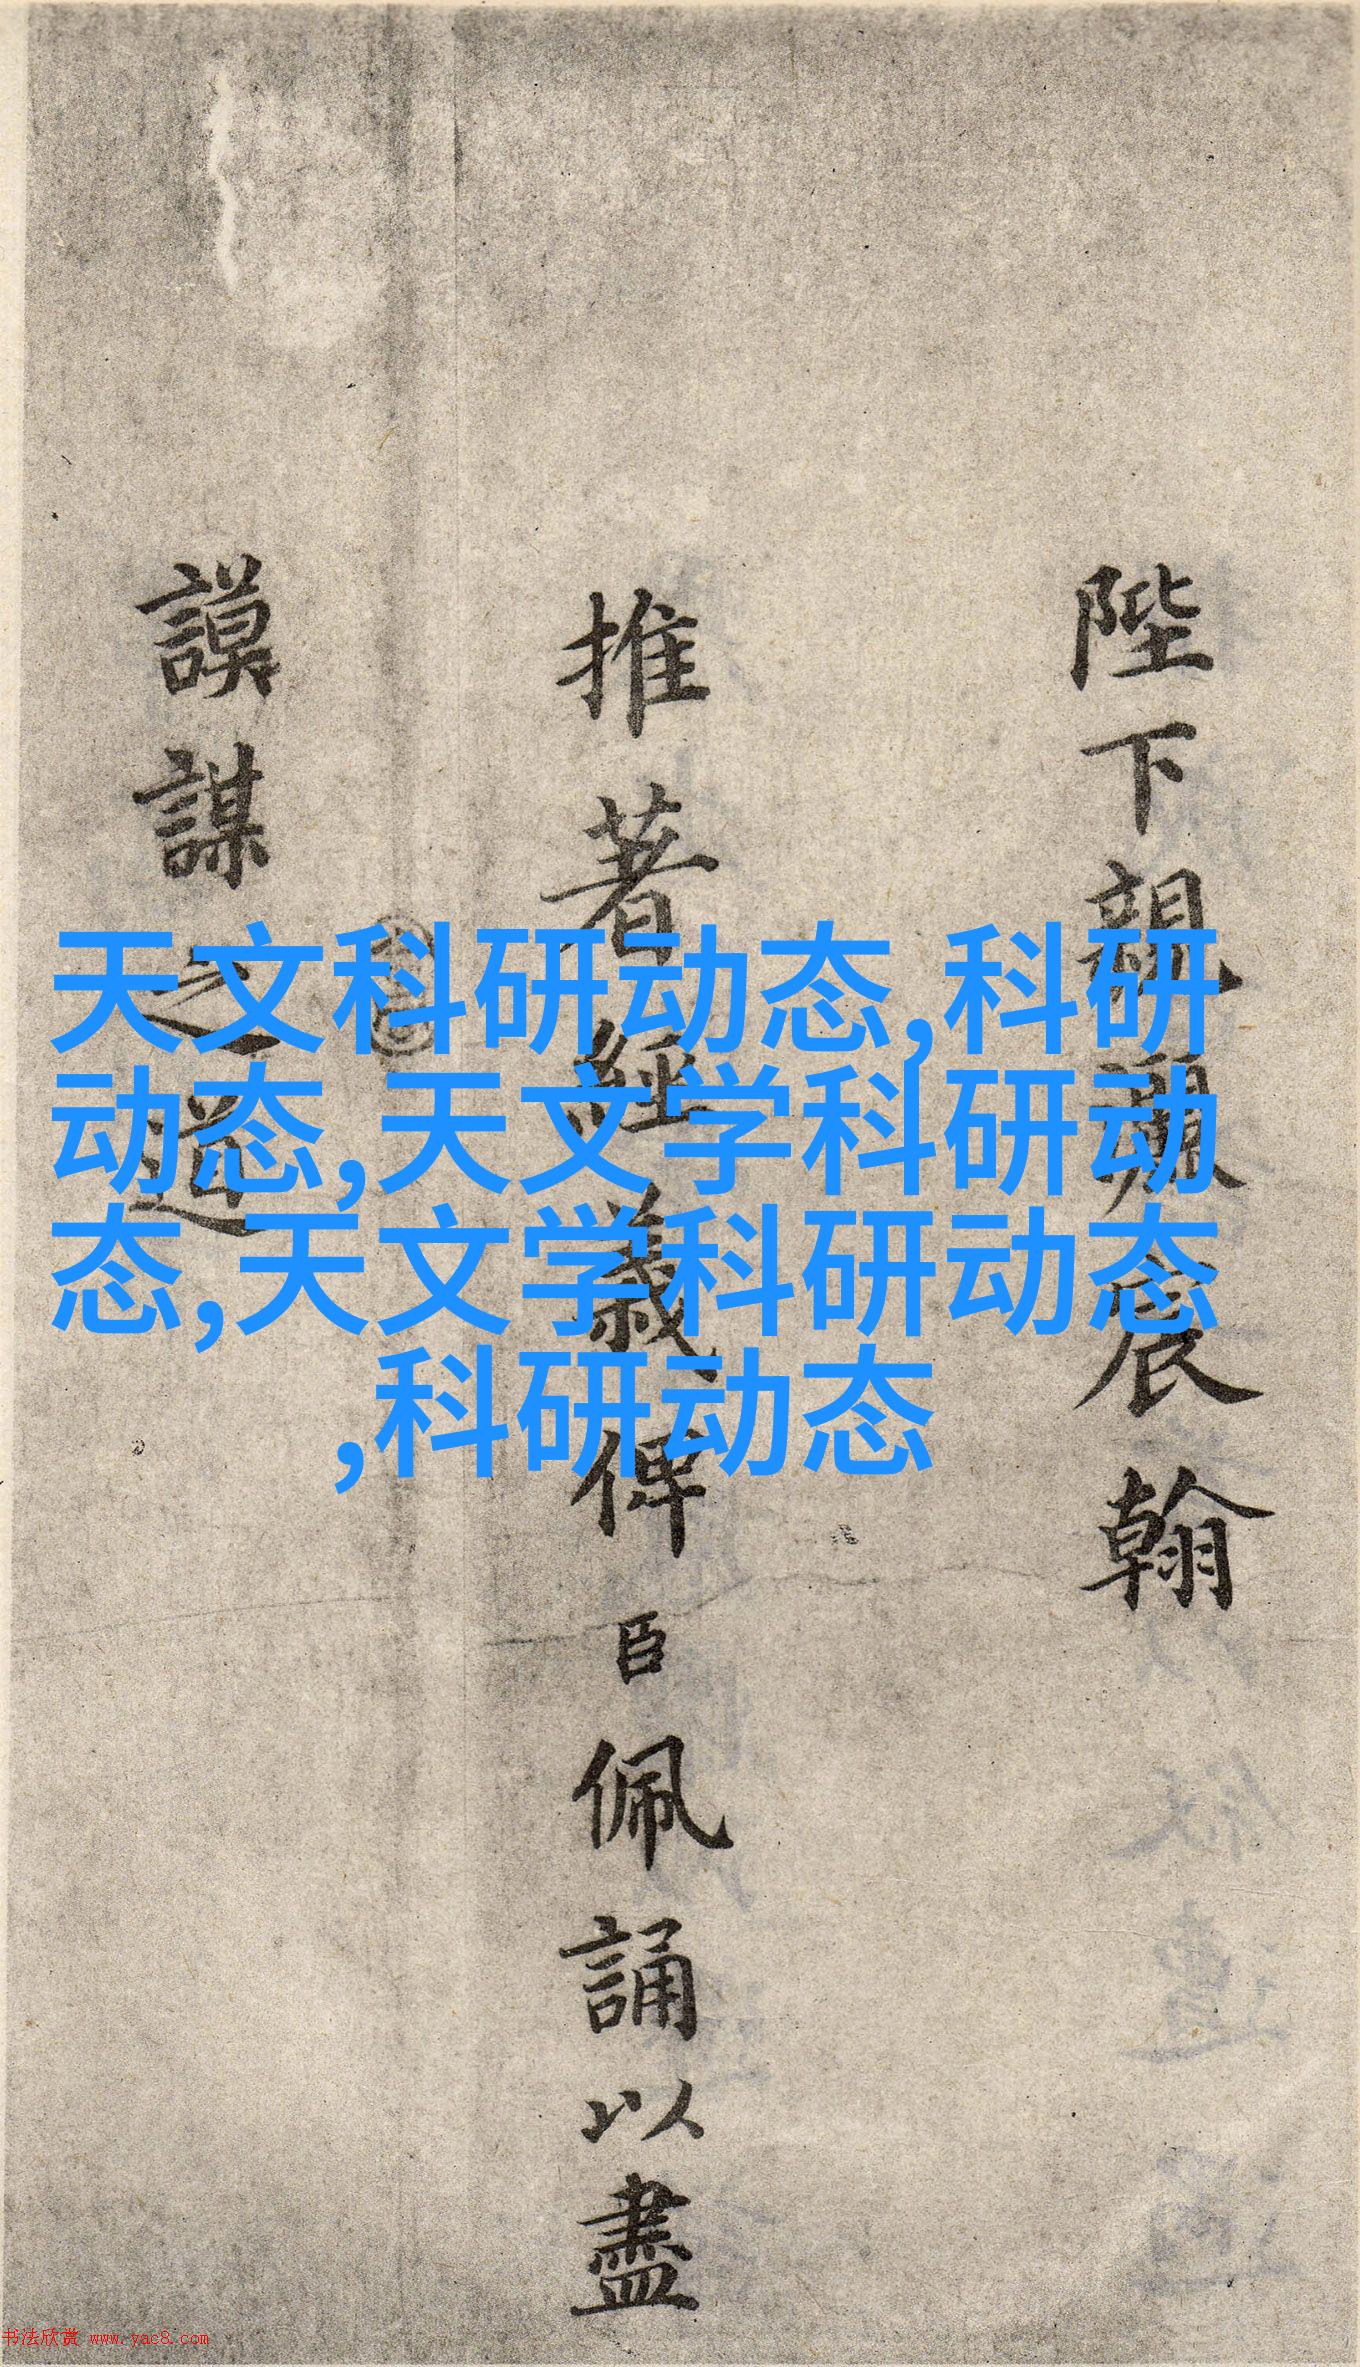 陛下親灑宸翰
推著經義俾臣佩誦以盡
謨謀之道
天文科研动态,科研
动态,天文学科研动
态,天文学科研动态
,科研动态
书法欣赏 www.yac8.com